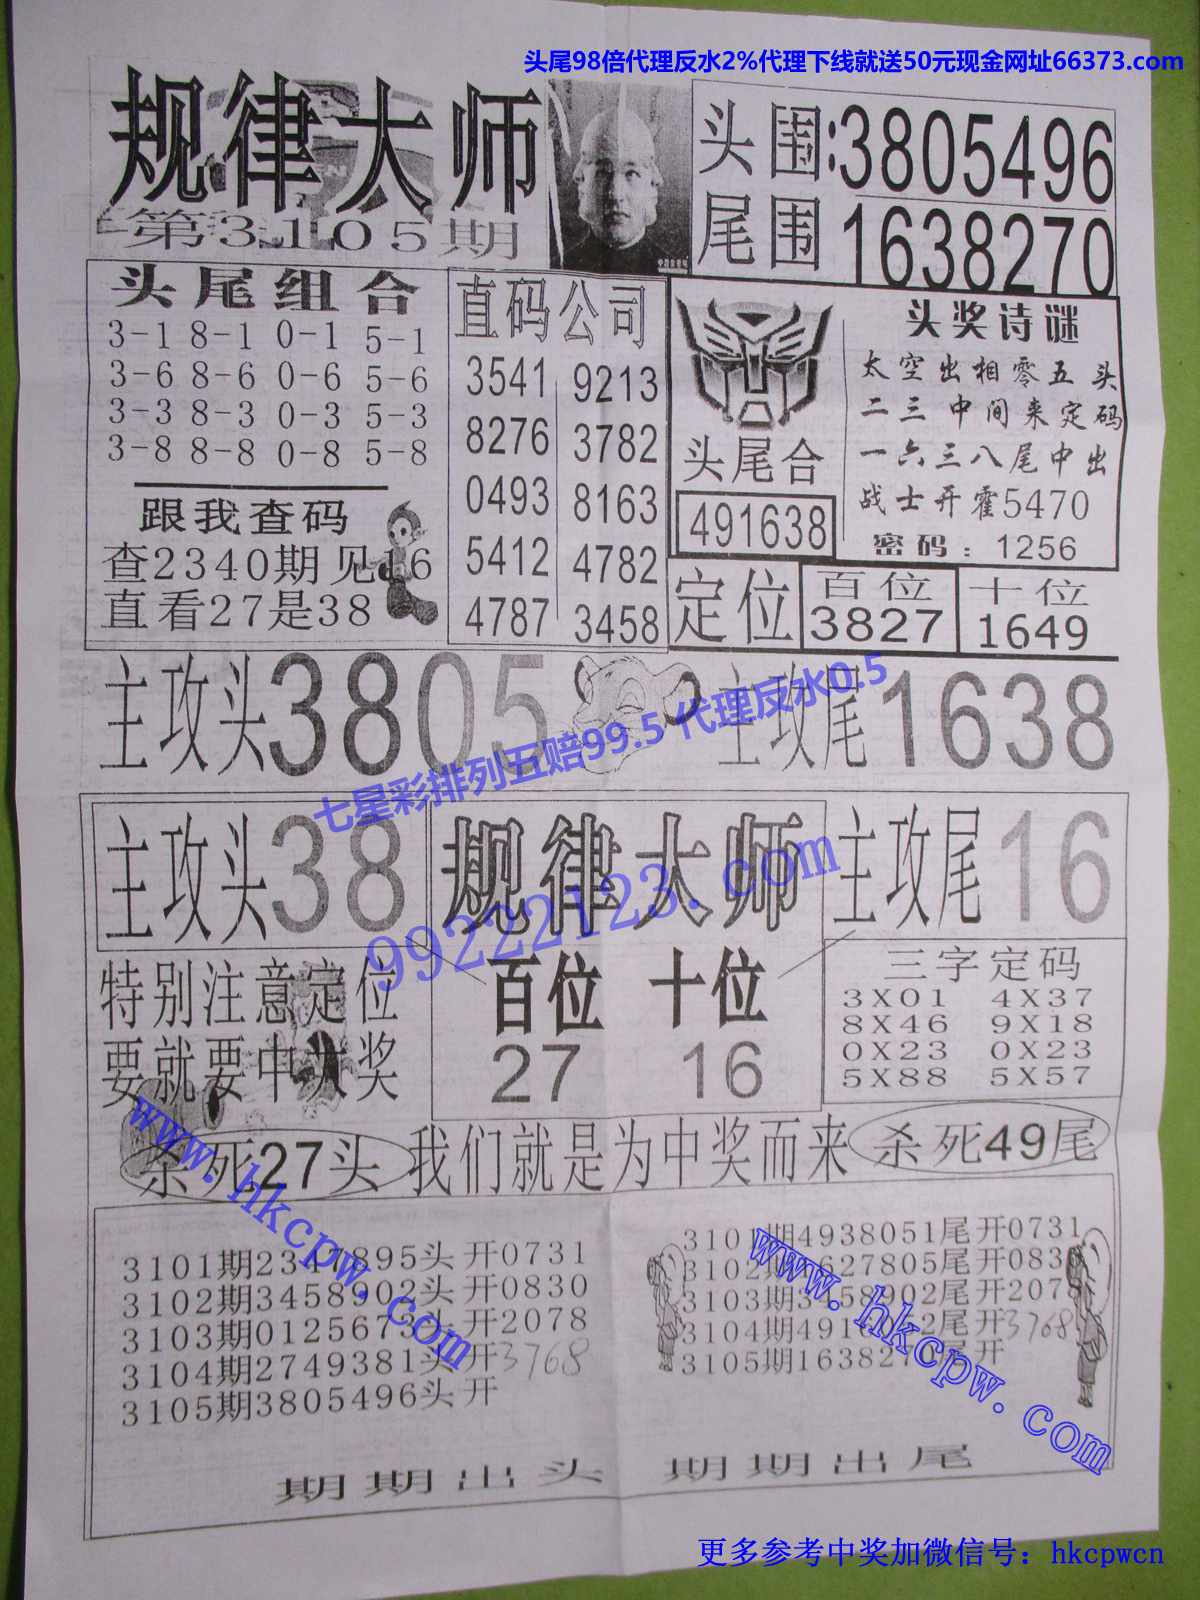 头尾98倍代理反水2%代理下线就送50元现金网址66373.com
规律大师
第3105期
头围:3805496
尾围1638270
头尾组合
3-1 8-1 0-1 5-1
3-6 8-6 0-6 5-6
3-3 8-3 0-3 5-3
3-8 8-8 0-8 5-8
跟我查码
查2340期见16
直看27是38
直码公司
3541 9213
8276 3782
0493 8163
5412 4782
4787 3458
头尾合
491638
头奖诗谜
太空出相零五头
二三中间来定码
一六三八尾中出
战士开霍5470
密码：1256
定位
百位
3827
十位
1649
主攻头3805
主攻尾1638
七星彩排列五赔99.5 代理反水0.5
主攻头38
规律大师
主攻尾16
99222123.com
特别注意定位
要就要中大奖
百位 十位
27 16
三字定码
3X01 4X37
8X46 9X18
0X23 0X23
5X88 5X57
杀死27头
我们就是为中奖而来
杀死49尾
www.hkcpw.com
3101期2347895头开0731
3102期3458902头开0830
3103期0125673头开2078
3104期2749381头开3768
3105期3805496头开
3101期4938051尾开0731
3102期1627805尾开0830
3103期3458902尾开2078
3104期4916 2尾开3768
3105期1638270尾开
www.hkcpw.com
期期出头 期期出尾
更多参考中奖加微信号：hkcpwcn